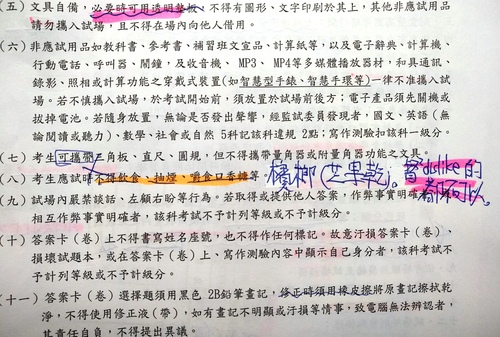 (五) 文具自備，必要時可用透明墊板，不得有圖形、文字印刷於其上，其他非應試用品
請勿攜入試場，且不得在場內向他人借用。
(六) 非應試用品如教科書、參考書、補習班文宣品、計算紙等，以及電子辭典、計算機、
行動電話、呼叫器、鬧鐘，及收音機、MP3、MP4等多媒體播放器材，和具通訊、
錄影、照相或計算功能之穿戴式裝置(如智慧型手錶、智慧手環等)一律不准攜入試
場。若不慎攜入試場，於考試開始前，須放置於試場前後方；電子產品須先關機或
拔掉電池。若隨身放置，無論是否發出聲響，經監試委員發現者，國文、英語(無
論閱讀或聽力)、數學、社會或自然5科記該科違規2點；寫作測驗扣該科一級分。
(七) 考生可攜帶三角板、直尺、圓規，但不得攜帶量角器或附量角器功能之文具。
(八) 考生應試時不得飲食、抽煙、嚼食口香糖等。檳榔(芒果乾)。當dislike的
都不可以。
(九) 試場內嚴禁談話、左顧右盼等行為。若取得或提供他人答案，作弊事實明確
相互作弊事實明確者，該科考試不予計列等級或不予計級分。
(十) 答案卡(卷)上不得書寫姓名座號，也不得作任何標記。故意汙損答案卡(卷)、
損壞試題本，或在答案卡(卷)上、寫作測驗內容中顯示自己身分者，該科考試不
予計列等級或不予計級分。
(十一) 答案卡(卷)選擇題須用黑色2B鉛筆畫記，修正時須用橡皮擦將原畫記擦拭乾
淨，不得使用修正液(帶)，如有畫記不明顯或汙損等情事，致電腦無法辨認者，
其責任自負，不得提出異議。